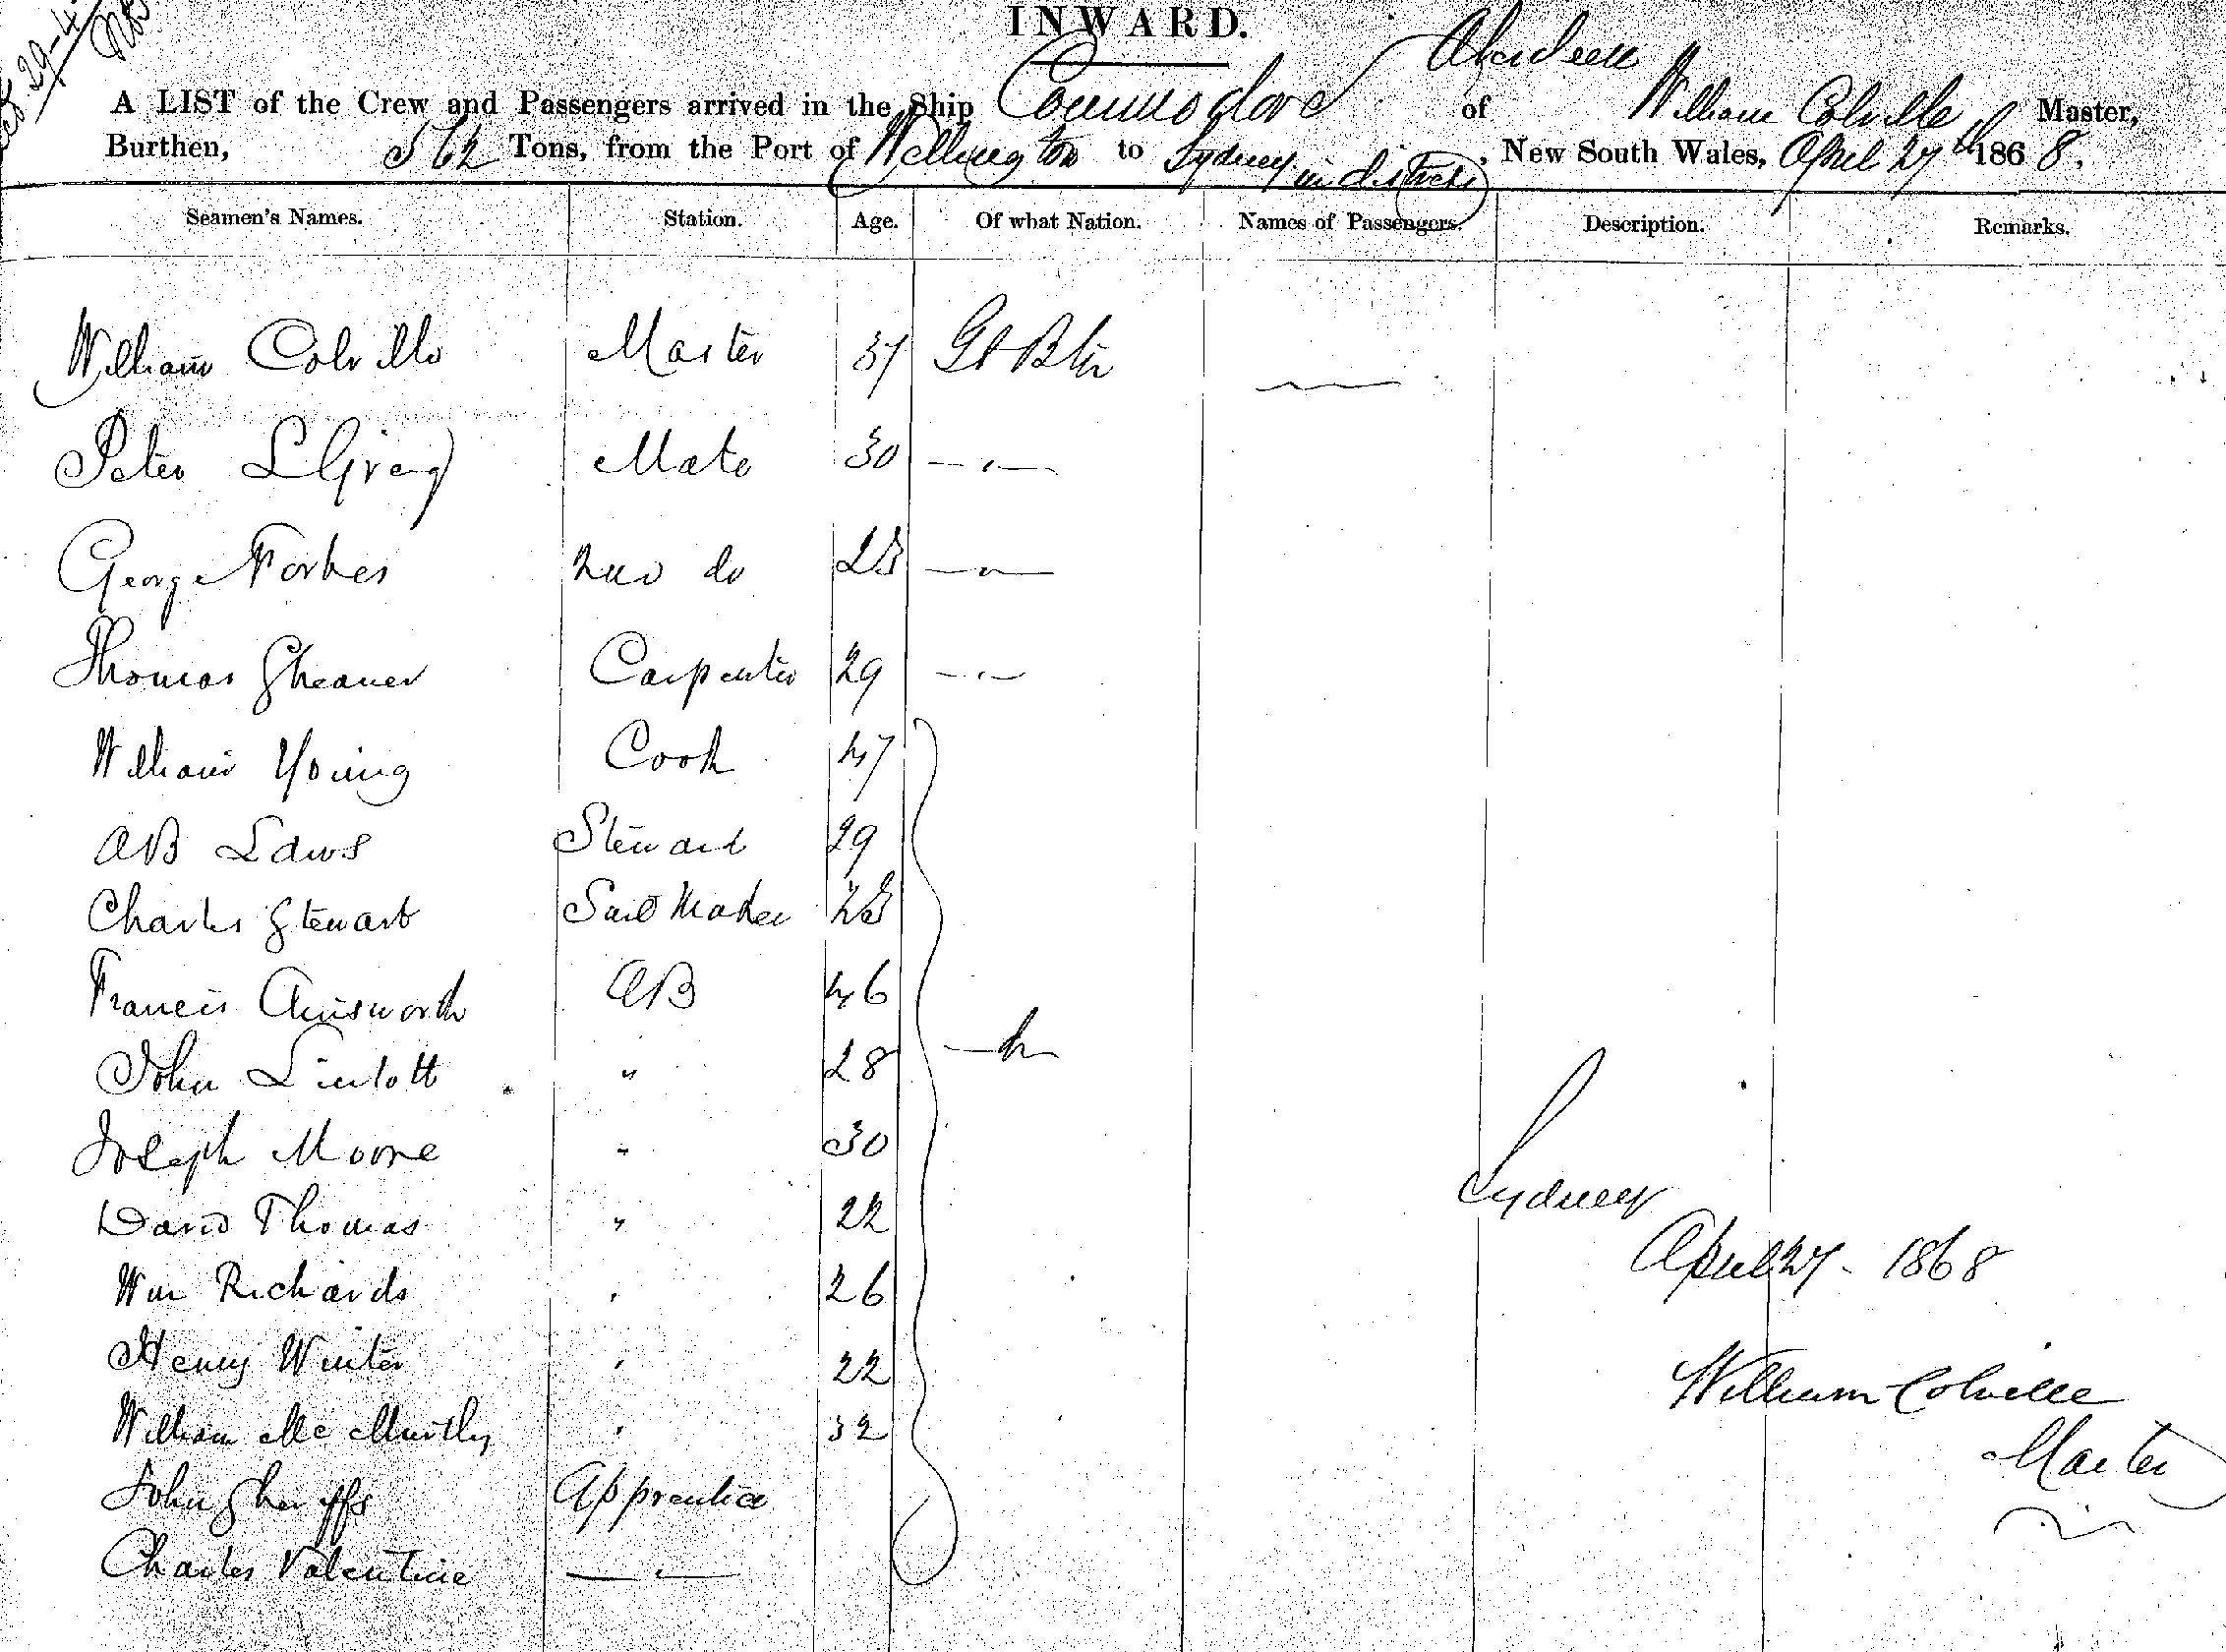 29-4
INWARD.
A LIST of the Crew and Passengers arrived in the Ship Commodore of Aberdeen William Colville Master,
Burthen, 562 Tons, from the Port of Wellington to Sydney in distress, New South Wales, April 27th 1868.
Seamen's Names. Station. Age. Of what Nation. Names of Passengers. Description. Remarks.
William Colville Master 37 Gt Btn
Peter L Greig Mate 30 — " —
George Forbes 2nd do 25 — " —
Thomas Shearer Carpenter 29 — " —
William Young Cook 47
AB Laws Steward 29
Charles Stewart Sail Maker 25
Francis Ainsworth AB 46
John Lintott " 28
Joseph Moore " 30
David Thomas " 22
Wm Richards " 26
Henry Winter " 22
William Mc " 32
John Sherriffs Apprentice
Charles Valentine — " —
Sydney
April 27 - 1868
William Colville
Master